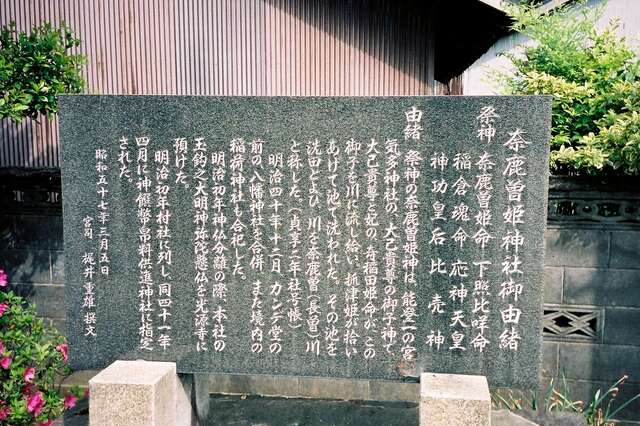 奈鹿曽姫神社御由緒
祭神 奈鹿曽姫命 下照比咩命
稲倉魂命 応神天皇
神功皇后 比売神
由緒 祭神の奈鹿曽姫神は、能登一の宮
気多神社の、大己貴尊の御子神で、
大己貴尊と妃の、寿稲田姫命が、この
御子を川に流し給い、抓津姫が拾い
あげて池で洗われた。その池を
洗田とよび、川を奈鹿曽(長曽)川
と称した。(貞享二年社号帳)
明治四十年十二月、カンデ堂の
前の、八幡神社を合併、また境内の
稲荷神社も合祀した。
明治初年神仏分離の際、本社の
玉鈎之大明神弥陀懸仏を光源寺に
預けた。
明治初年村社に列し、同四十一年
四月に神饌幣帛料供進神社に指定
された。
昭和五十七年三月五日
宮司 梶井重雄 撰文